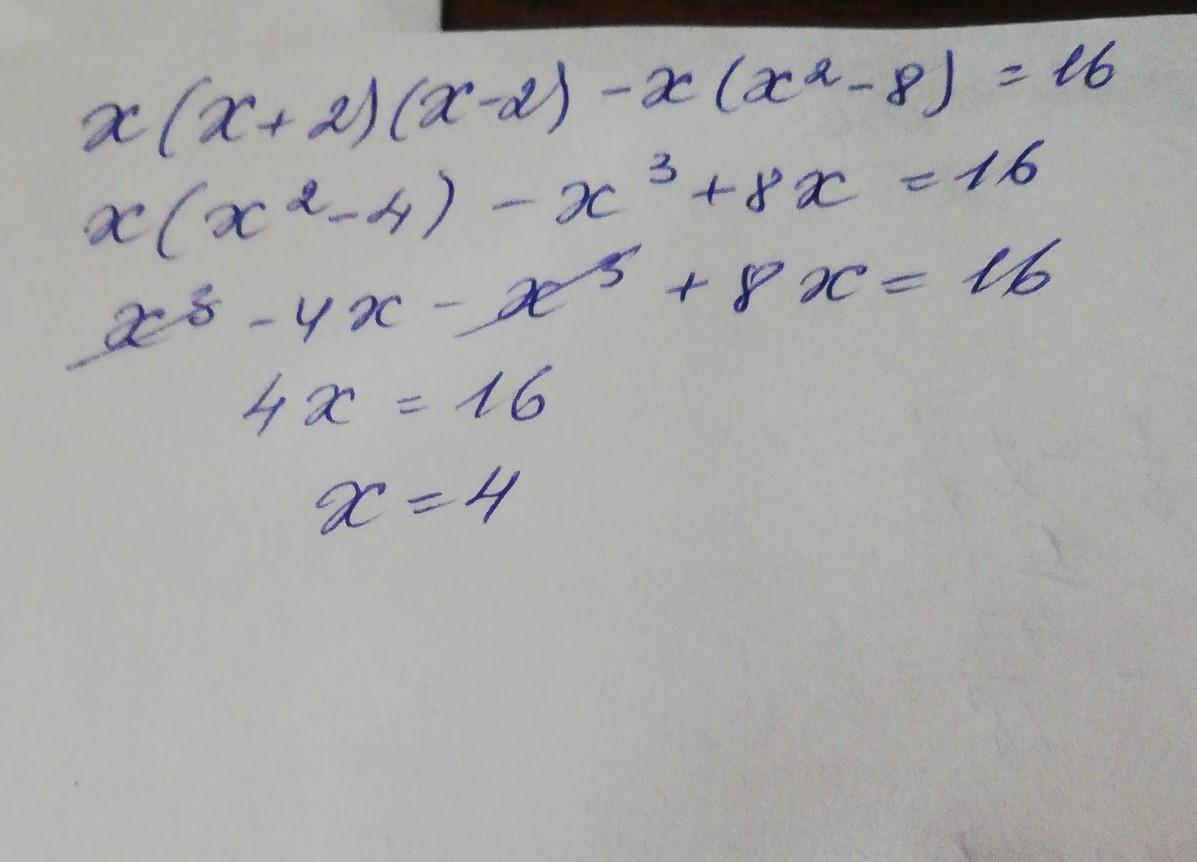 x(x+2)(x-2) - x(x²-8) = 16
x(x²-4) - x³+8x = 16
x³ - 4x - x³ + 8x = 16
4x = 16
x = 4